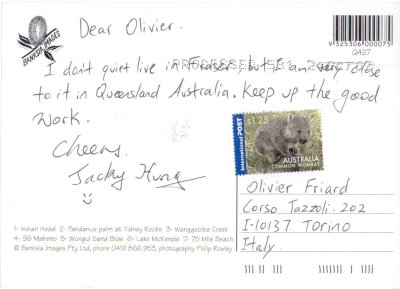 Dear Olivier.
BANKSIA IMAGES
9 325306 000075
Q427
I don't quiet live in Fraser, but I am very close
to it in Queensland Australia. Keep up the good
work.
Cheers.
Jacky Hung
International POST
$1.25
AUSTRALIA
COMMON WOMBAT
Olivier Friard
Corso Tazzoli. 202
I-10137 Torino
Italy.
1- Indian Head 2- Pandanus palm at Yidney Rocks 3- Wanggoolba Creek
4- SS Maheno 5- Wungul Sand Blow 6- Lake McKenzie 7- 75 Mile Beach
© Banksia Images Pty Ltd, phone 0419 866 953, photography Philip Rowley